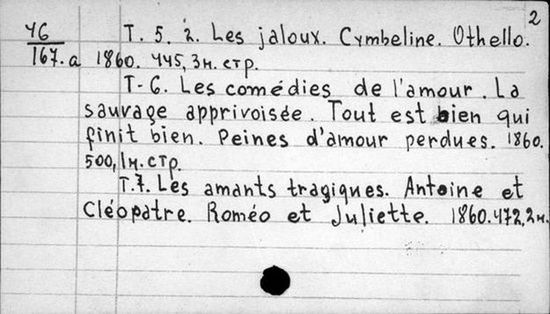 2
46 T. 5. 2. Les jaloux. Cymbeline. Othello.
167.a 1860. 445, 3н. стр.
T-6. Les comédies de l'amour. La
sauvage apprivoisée. Tout est bien qui
finit bien. Peines d'amour perdues. 1860.
500, 1н. стр.
T.7. Les amants tragiques. Antoine et
Cléopatre. Roméo et Juliette. 1860. 472, 2н.